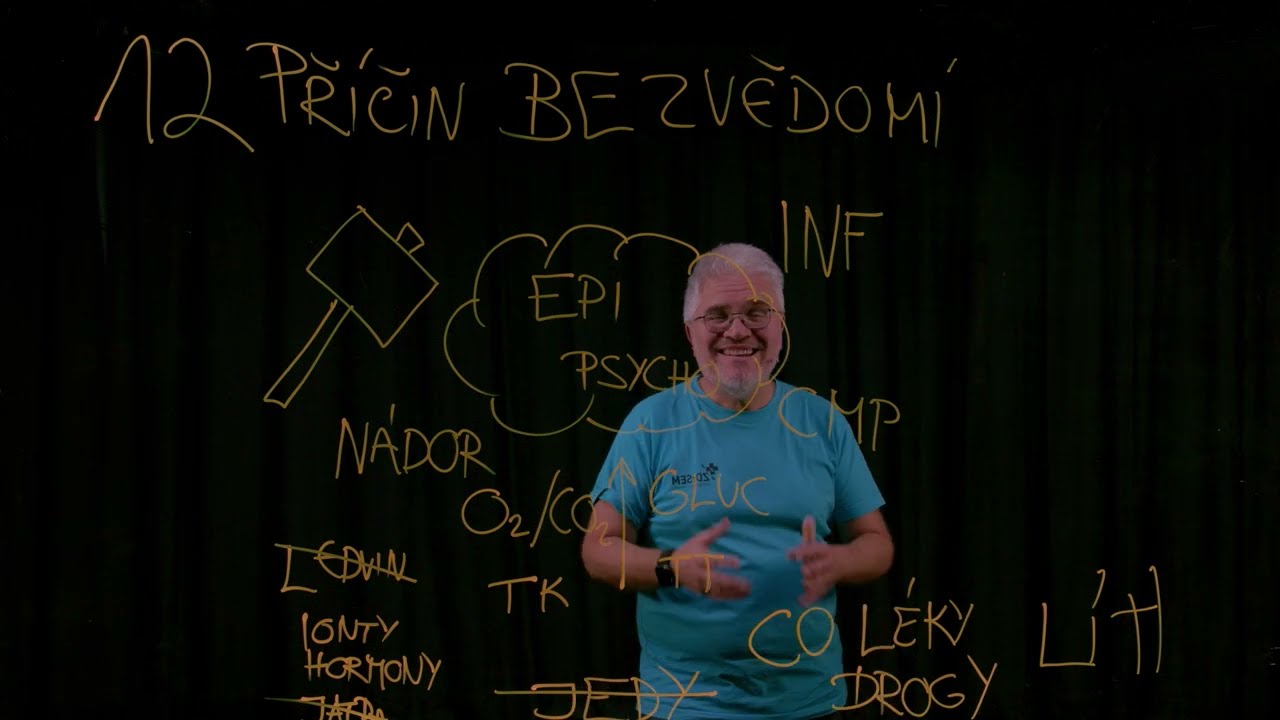 12 PŘÍČIN BEZVĚDOMÍ
INF
EPI
PSYCHO
CMP
NÁDOR
O2/CO2
GLUC
LEDVIN
TK
TT
IONTY
HORMONY
JÁTRA
JEDY
CO LÉKY
DROGY
LÍH